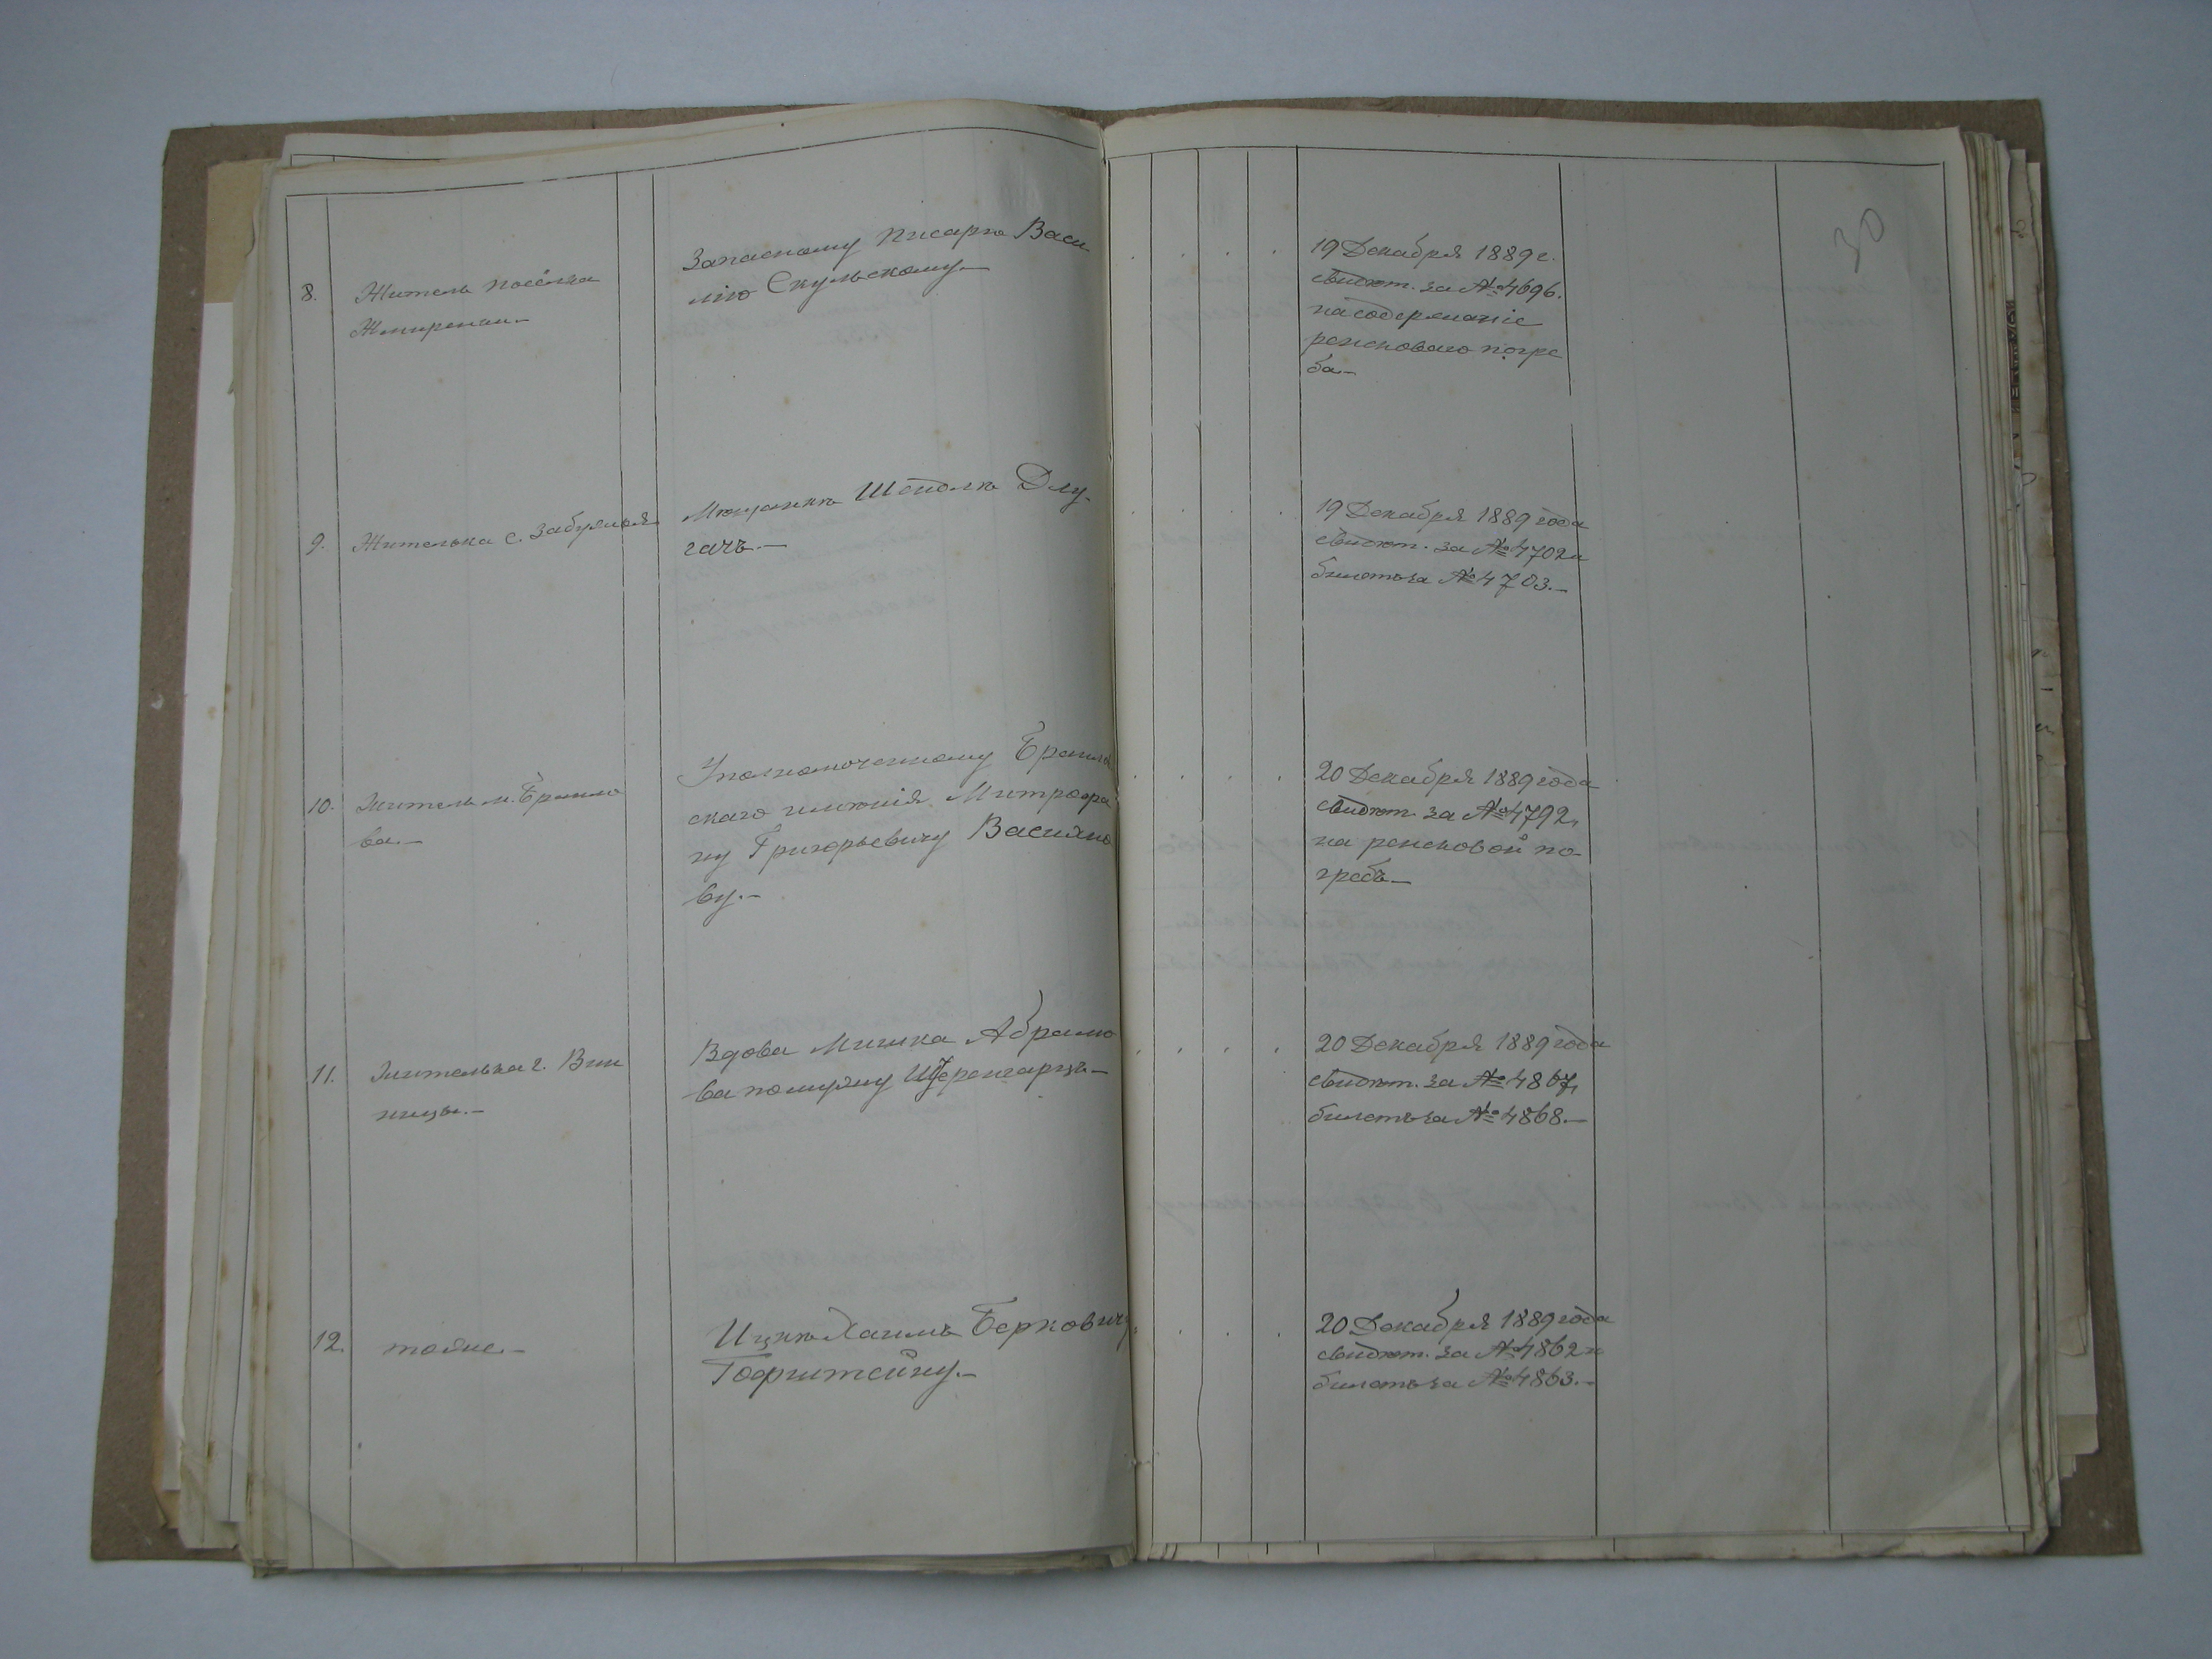 30
8.
Житель посёлка
Жмеренки.—
Запасному писарю Васи-
лію Скульскому.—
19 Декабря 1889 г.
свидѣт. за № 4696.
на содержаніе
ренсковаго погре
ба.—
9.
Жителька с. Забужья
Мѣщанкѣ Шейвлѣ Длу-
гачъ.—
19 Декабря 1889 года
свидѣт. за № 4702 и
билетъ за № 4703.—
10.
Житель м. Браило
ва.—
Уполномоченному Браилов
скаго имѣнія Митрофа
ну Григорьевичу Василье
ву.—
20 Декабря 1889 года
свидѣт. за № 4792,
на ренсковой по-
гребъ.—
11.
Жителька г. Вин
ницы.—
Вдова Абрамо
ва по мужу
20 Декабря 1889 года
свидѣт. за № 4867,
билетъ за № 4868.—
12.
тоже.—
Ицкѣ Хаимъ Берковичу
Гофштейну.—
20 Декабря 1889 года
свидѣт. за № 4862 и
билетъ за № 4863.—